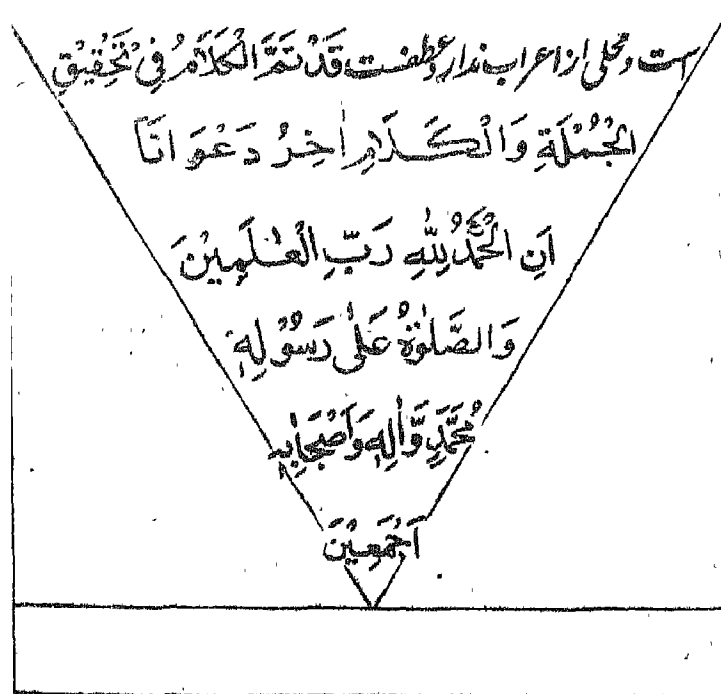 است ومحلی از اعراب ندارد وعطفست قَدْ تَمَّ الْكَلَامُ فِيْ تَحْقِيْقِ
الْجُمْلَةِ وَالْكَلَامِ اٰخِرُ دَعْوَانَا
اَنِ الْحَمْدُ لِلّٰهِ رَبِّ الْعٰلَمِيْنَ
وَالصَّلٰوةُ عَلٰى رَسُوْلِهٖ
مُحَمَّدٍ وَّاٰلِهٖ وَاَصْحَابِهٖ
اَجْمَعِيْنَ